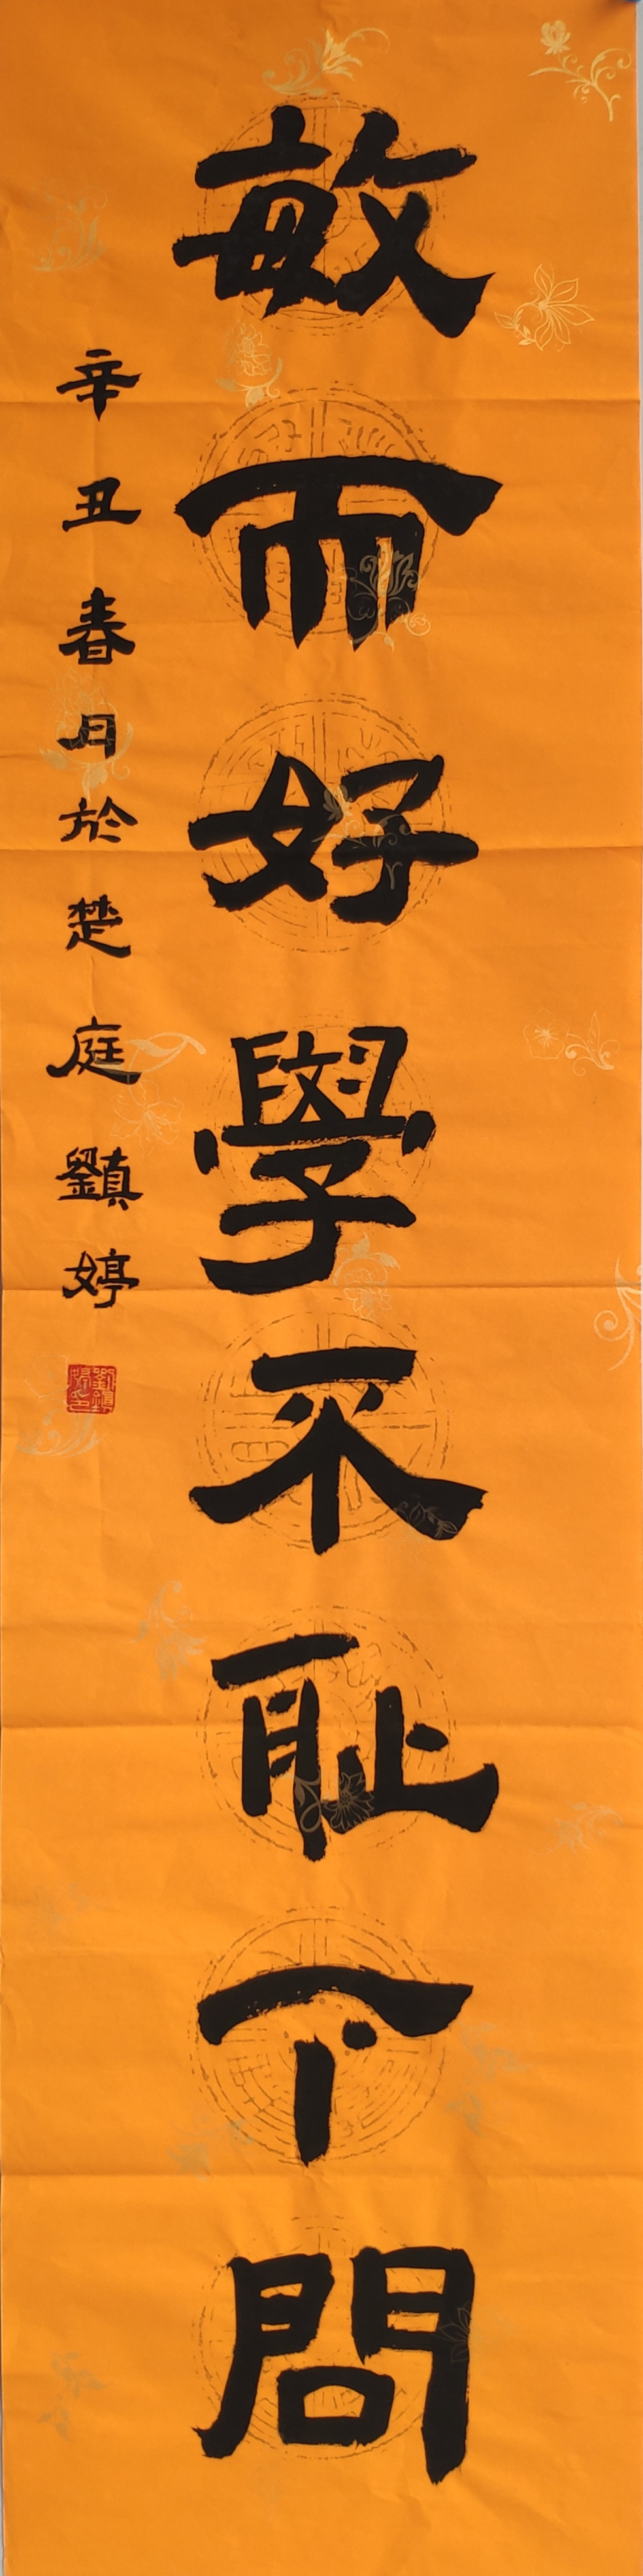 敏而好學不恥下問
辛丑春月於楚庭劉鎮婷